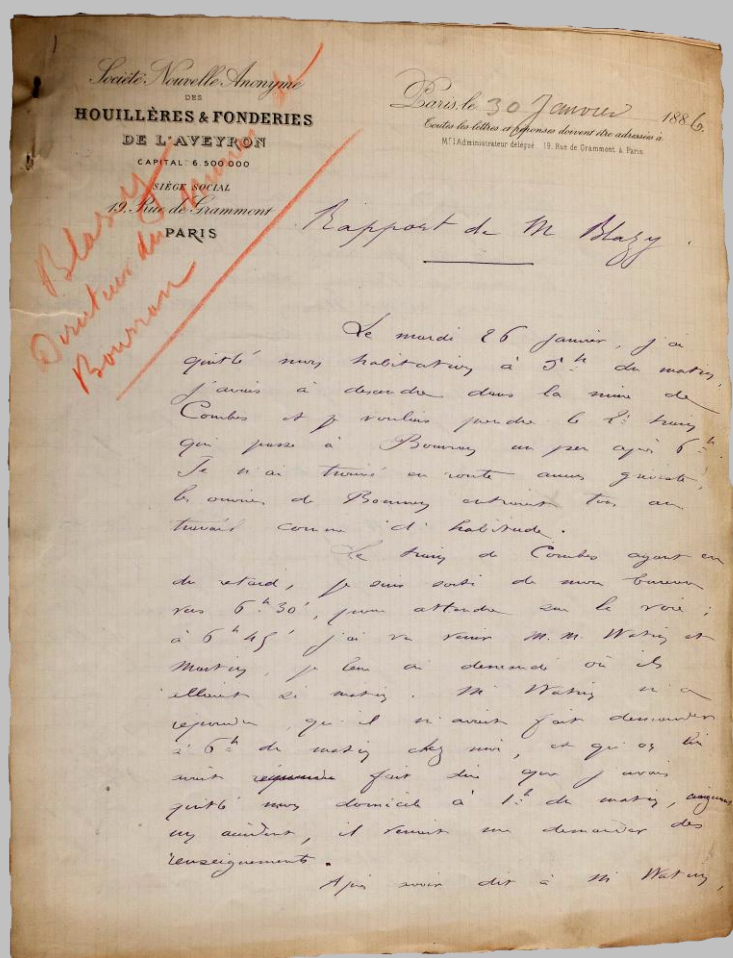 Société Nouvelle Anonyme
DES
HOUILLÈRES & FONDERIES
DE L'AVEYRON
CAPITAL: 6.500.000
SIÈGE SOCIAL
19, Rue de Grammont
PARIS
Paris, le 30 Janvier 1886.
Toutes les lettres et réponses doivent être adressées à
Mr l'Administrateur délégué. 19, Rue de Grammont à Paris
Blazy
Directeur des mines de
Bourran
Rapport de M Blazy.
Le mardi 26 janvier, j'ai
quitté mon habitation à 5h du matin,
j'avais à descendre dans la mine de
Combes et je voulais prendre le 2e train
qui passe à Bourran un peu après 6h.
Je n'ai trouvé en route aucun gréviste,
les ouvriers de Bourran entraient tous au
travail comme d'habitude.
Le train de Combes ayant eu
du retard, je suis sorti de mon bureau
vers 6h 30', pour attendre sur la voie;
à 6h 45' j'ai vu venir M.M. Watrin et
Martin, je leur ai demandé où ils
allaient si matin. Mr Watrin m'a
répondu qu'il m'avait fait demander
à 6h du matin chez moi, et qu'on lui
avait fait dire que j'avais
quitté mon domicile à 1h du matin,
un accident, il venait me demander des
renseignements.
Après avoir dit à Mr Watrin,